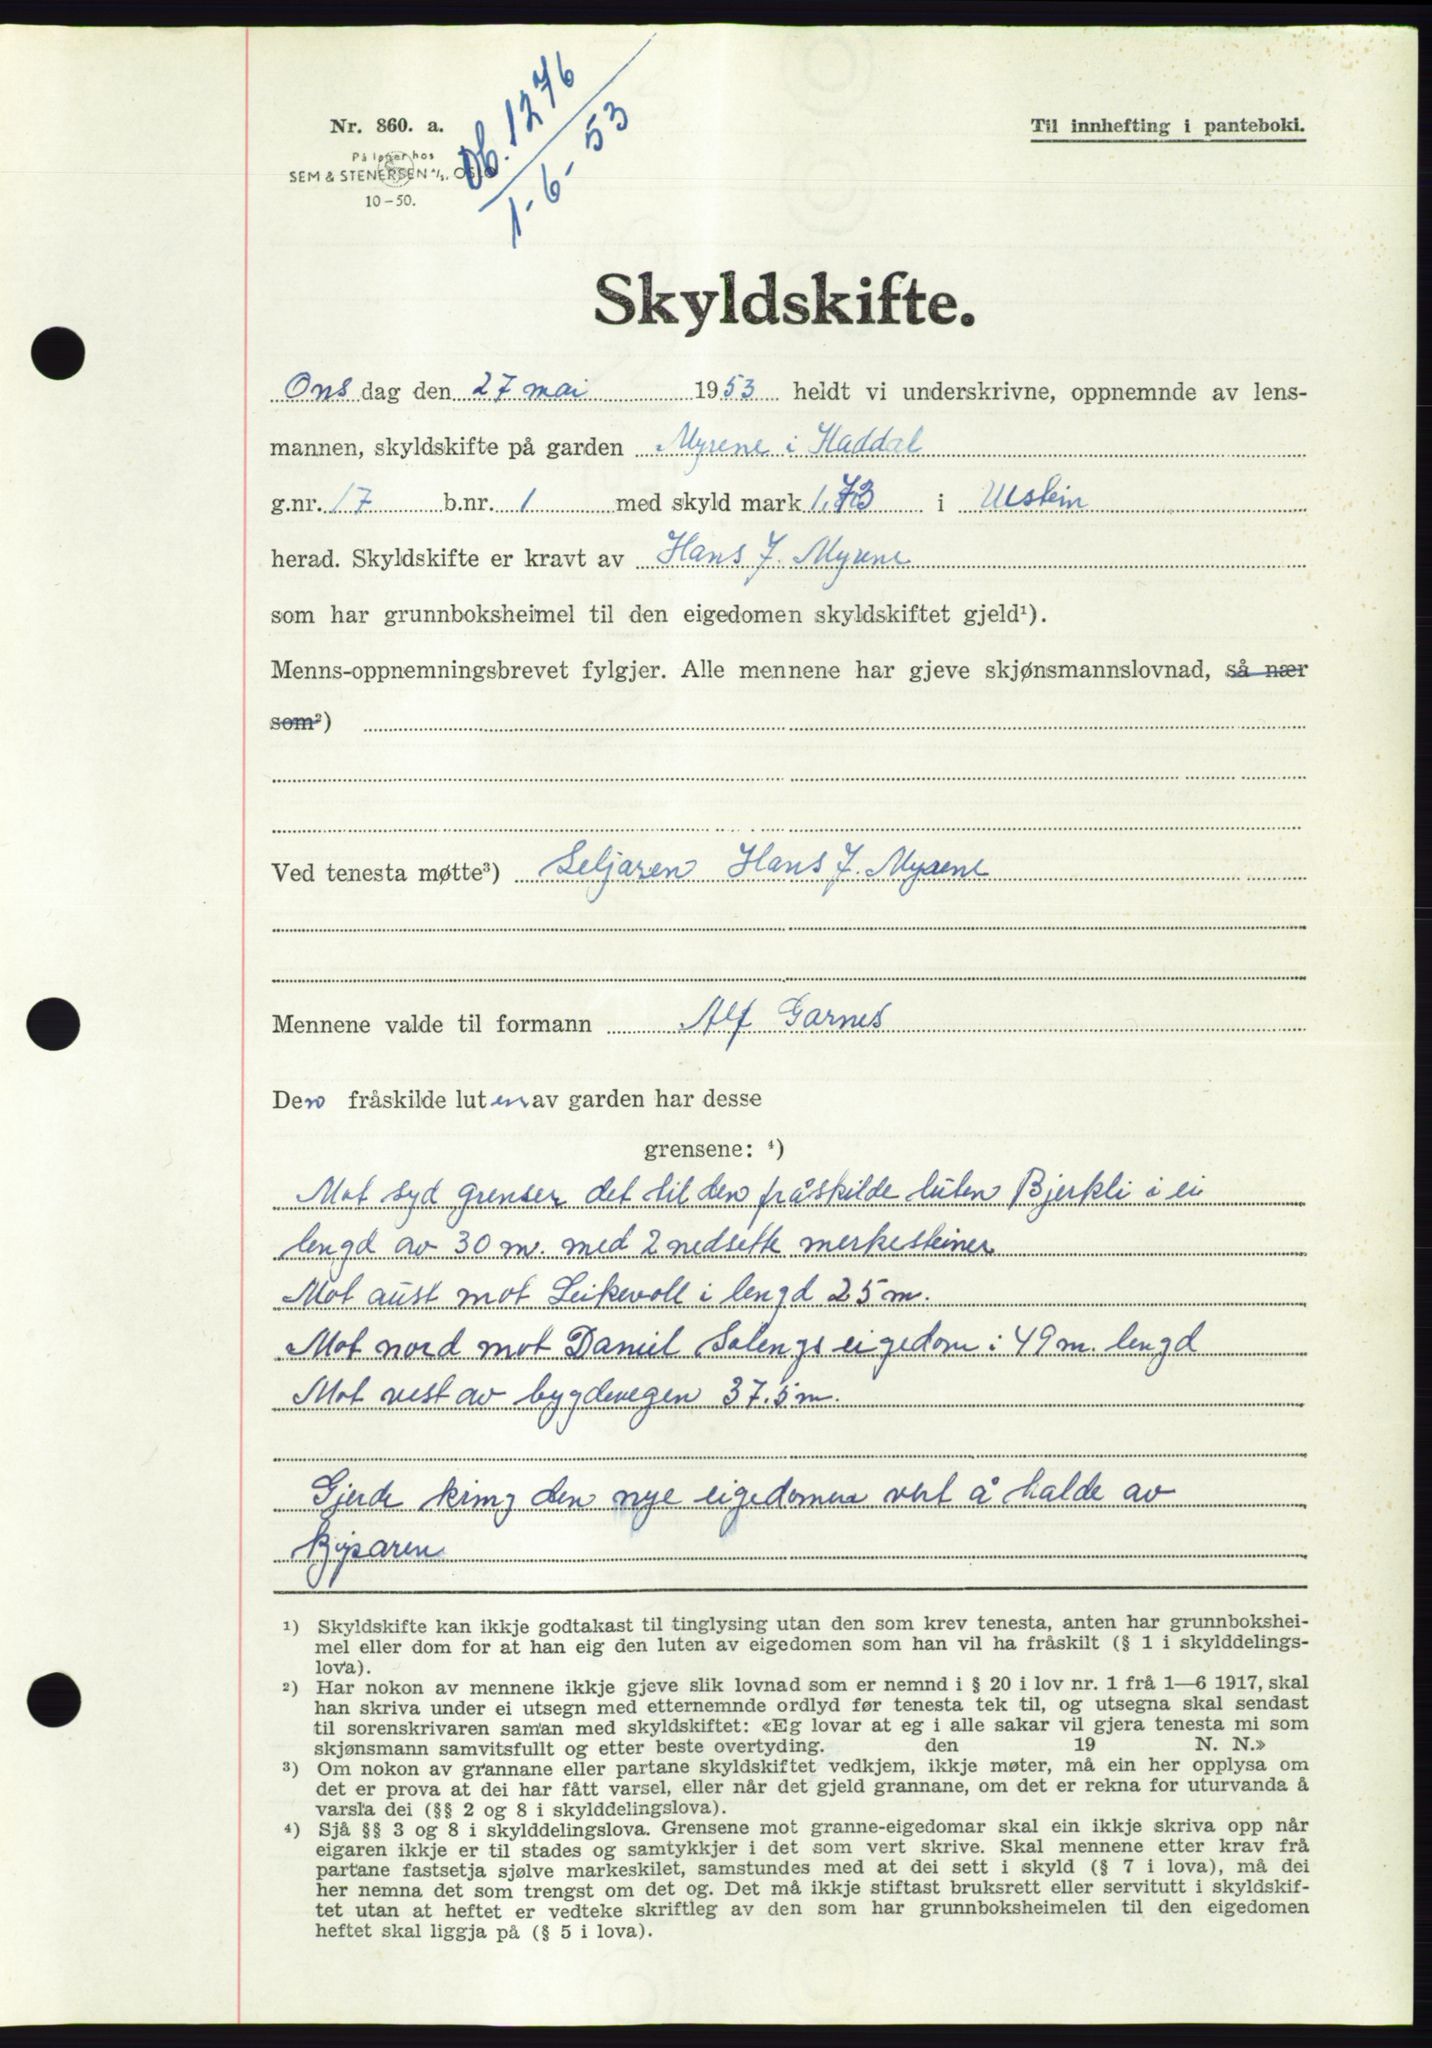 Nr. 860. a.
På lager hos
SEM & STENERSEN A/S, OSLO
10-50.
Db. 1276
1-6-53
Til innhefting i panteboki.
Skyldskifte.
Ons dag den 27 mai 1953 heldt vi underskrivne, oppnemnde av lens-
mannen, skyldskifte på garden Myrene i Haddal
g.nr. 17 b.nr. 1 med skyld mark 1,73 i Ulstein
herad. Skyldskifte er kravt av Hans J. Myrene
som har grunnboksheimel til den eigedomen skyldskiftet gjeld¹).
Menns-oppnemningsbrevet fylgjer. Alle mennene har gjeve skjønsmannslovnad, så nær
som²)
Ved tenesta møtte³) Seljaren Hans J. Myrene
Mennene valde til formann Alf Garnes
Den fråskilde luten av garden har desse
grensene: ⁴)
Mot syd grenser det til den fråskilde luten Bjerkli i ei
lengd av 30 m. med 2 nedsette merkesteiner
Mot aust mot Leikevoll i lengd 25 m.
Mot nord mot Daniel Solengs eigedom i 49 m. lengd
Mot vest av bygdevegen 37.5 m.
Gjerde kring den nye eigedomen vert å halde av
kjøparen
¹) Skyldskifte kan ikkje godtakast til tinglysing utan den som krev tenesta, anten har grunnbokshei-
mel eller dom for at han eig den luten av eigedomen som han vil ha fråskilt (§ 1 i skylddelings-
lova).
²) Har nokon av mennene ikkje gjeve slik lovnad som er nemnd i § 20 i lov nr. 1 frå 1—6 1917, skal
han skriva under ei utsegn med etternemnde ordlyd før tenesta tek til, og utsegna skal sendast
til sorenskrivaren saman med skyldskiftet: «Eg lovar at eg i alle sakar vil gjera tenesta mi som
skjønsmann samvitsfullt og etter beste overtyding. den 19 N. N.»
³) Om nokon av grannane eller partane skyldskiftet vedkjem, ikkje møter, må ein her opplysa om
det er prova at dei har fått varsel, eller når det gjeld grannane, om det er rekna for uturvanda å
varsla dei (§§ 2 og 8 i skylddelingslova).
⁴) Sjå §§ 3 og 8 i skylddelingslova. Grensene mot granne-eigedomar skal ein ikkje skriva opp når
eigaren ikkje er til stades og samtykkjer i det som vert skrive. Skal mennene etter krav frå
partane fastsetja sjølve markeskilet, samstundes med at dei sett i skyld (§ 7 i lova), må dei
her nemna det som trengst om det og. Det må ikkje stiftast bruksrett eller servitutt i skyldskif-
tet utan at heftet er vedteke skriftleg av den som har grunnboksheimelen til den eigedomen
heftet skal liggja på (§ 5 i lova).